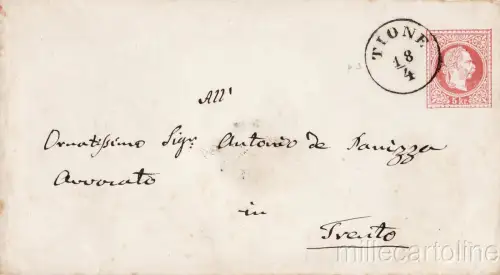 TIONE
18/4
5 kr.
All'
Ornatissimo Sigr. Antonio de Panizza
Avvocato
in
Trento
millecartoline